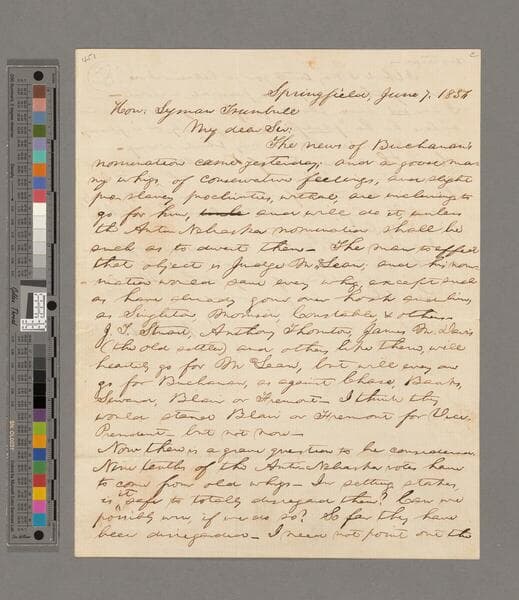 Springfield, June 7. 1856
Hon: Lyman Trumbull
My dear Sir:
The news of Buchanan's
nomination came yesterday; and a good ma-
ny whigs, of conservative feelings, and slight
pro-slavery proclivities, withal, are inclining to
go for him, and will do it, unless
the Anti-Nebraska nomination shall be
such as to divert them— The man to effect
that object is Judge McLean; and his nom-
ination would save every whig, except such
as have already gone over hook and line,
as Singleton, Morrison, Constable & others—
J. T. Stuart, Anthony Thornton, James M. Davis
(the old settler) and others, like them, will
heartily go for McLean, but will every one
go for Buchanan, as against Chase, Banks,
Seward, Blair or Fremont— I think they
would stand Blair or Fremont for Vice-
President— but not more—
Now there is a grave question to be considered.
Nine tenths of the Anti-Nebraska votes have
to come from old whigs— In setting stakes,
is it safe to totally disregard them? Can we
possibly win, if we do so? So far they have
been disregarded— I need not point out the